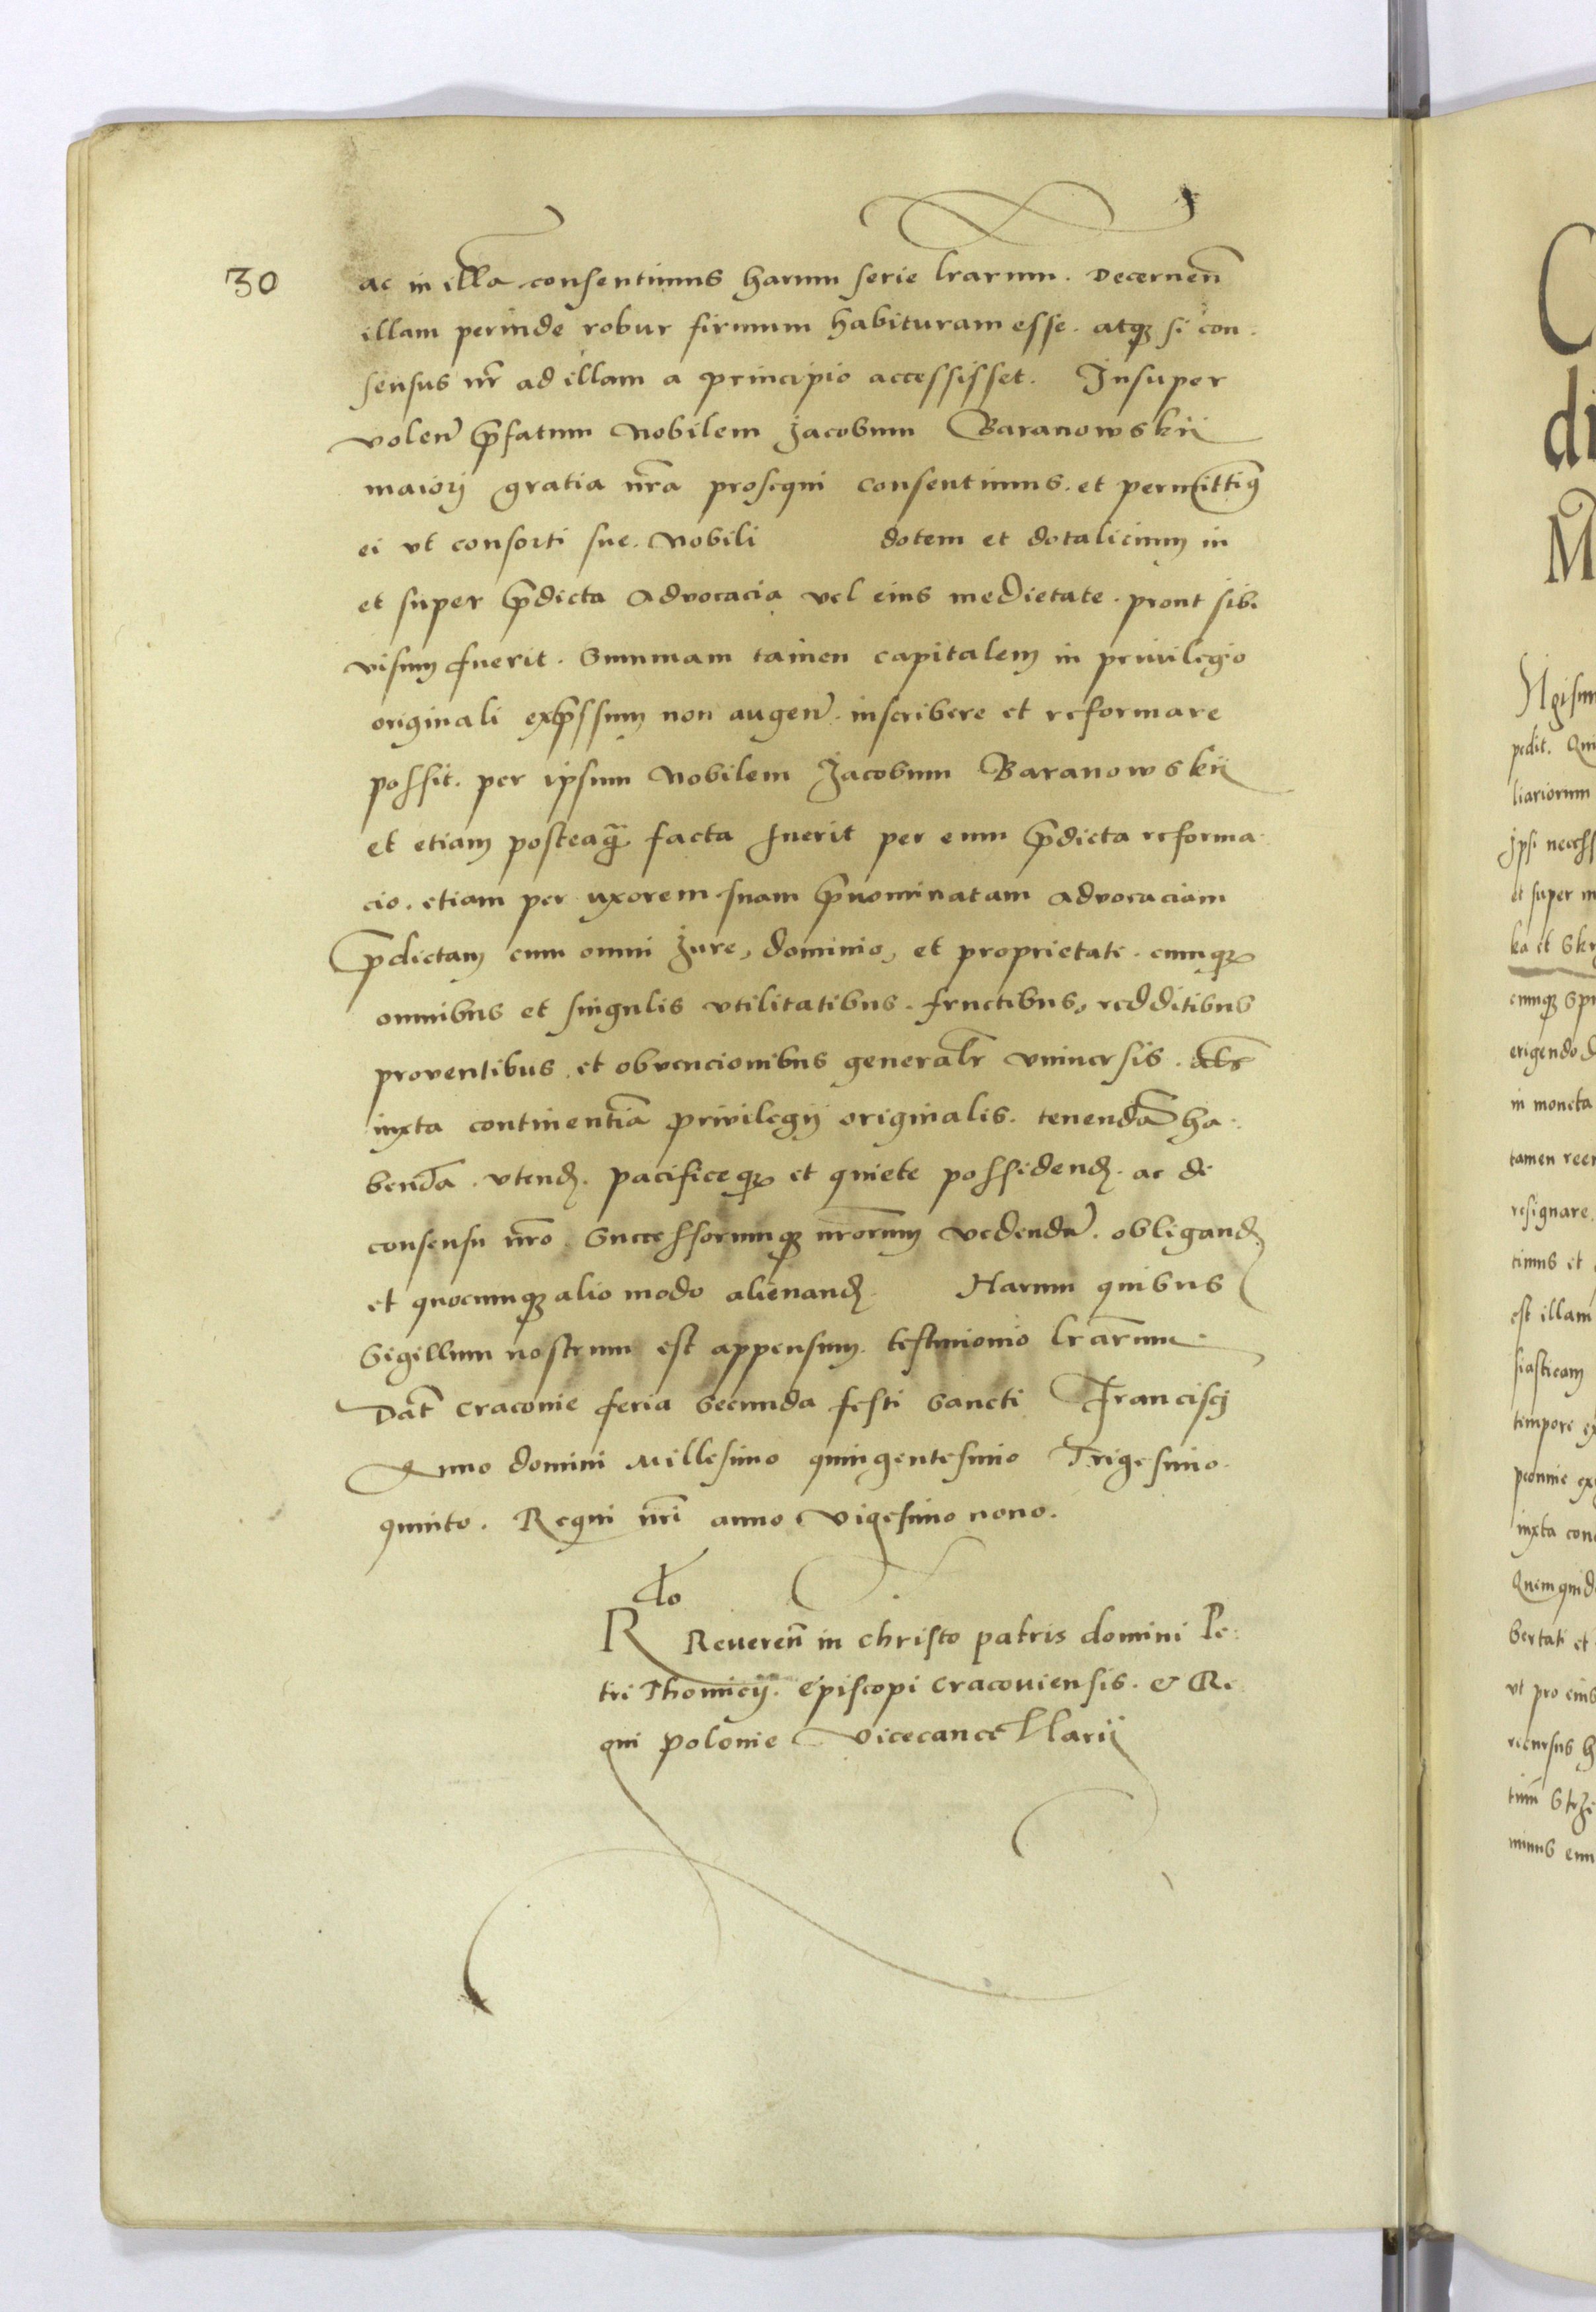 30
ac in illa consentimus harum serie lrarum. Decernen̄
illam perinde robur firmum habituram esse. atqꝫ si con.
sensus nr̄ ad illam a principio accessisset. Insuper
volen̄ p̄fatum Nobilem Jacobum Baranowskij
maiorj gratia nr̄a prosequi consentimus. et permittimꝰ
ei vt consorti sue. Nobili dotem et dotalicium in
et super p̄dicta Advocacia vel eius medietate. prout sibi
visum fuerit. Summam tamen capitalem in privilegio
originali exp̄ssum non augen̄. inscribere et reformare
possit. per ipsum Nobilem Jacobum Baranowskij
et etiam posteaq̄ facta fuerit per eum p̄dicta reforma
cio. etiam per uxorem suam p̄nominatam Advocaciam
p̄dictam cum omni Jure, dominio, et proprietate. cumqꝫ
omnibus et singulis vtilitatibus. fructibus, redditibus
proventibus. et obvencionibus generalr̄ vniversis.
iuxta continentiā privilegij originalis. tenendā ha.
bendā. vtendꝫ. pacificeqꝫ et quiete possidendꝫ. ac de
consensu nr̄o. Successorumqꝫ nr̄orum vedendā. obligandꝫ
et quocumqꝫ alio modo alienandꝫ. Harum quibus
Sigillum nostrum est appensum. testimonio lrārum.
Dat̄ Cracovie feria secunda festi Sancti Franciscj
Anno domini Millesimo quingentesimo Trigesimo.
quinto. Regni nr̄i anno vigesimo nono.
Rdo
Reveren̄ in christo patris domini Pe.
tri Thomicij. Episcopi Cracoviensis. & Re
gni Polonie Vicecancellarij